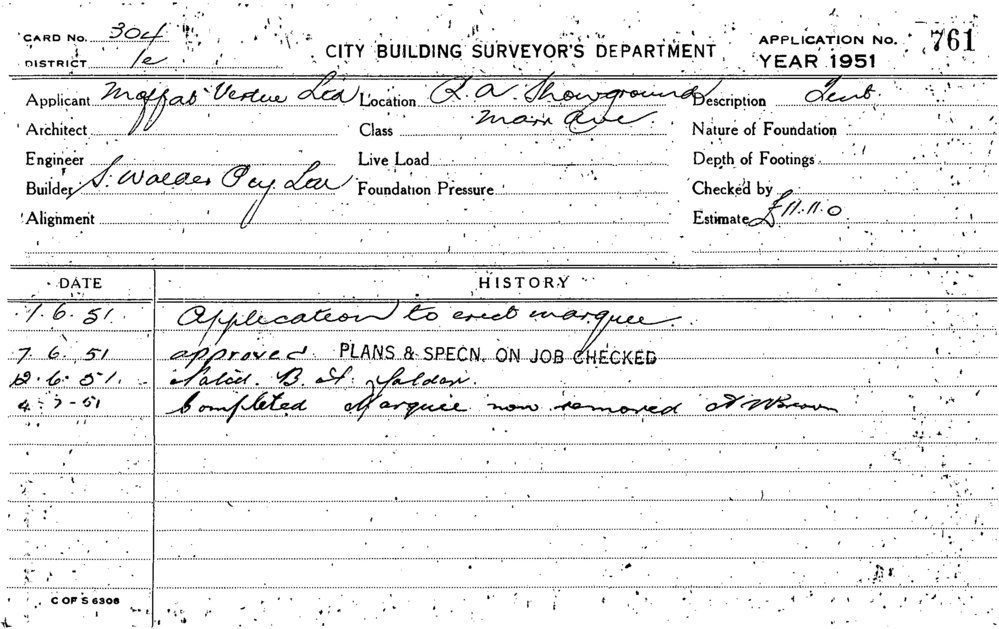 CARD No. 304
DISTRICT 1e
CITY BUILDING SURVEYOR'S DEPARTMENT
APPLICATION No. 761
YEAR 1951
Applicant Moffat Virtue Ltd Location R. A. Showground Description Tent
Architect Class Main Ave Nature of Foundation
Engineer Live Load Depth of Footings
Builder S. Walder Pty Ltd Foundation Pressure Checked by
Alignment Estimate £11.11.0
DATE HISTORY
1.6.51. Application to erect marquee.
7.6.51 approved. PLANS & SPECN. ON JOB CHECKED
12.6.51. Noted. B.
4-7-51 Completed Marquee now removed
C OF S 6306